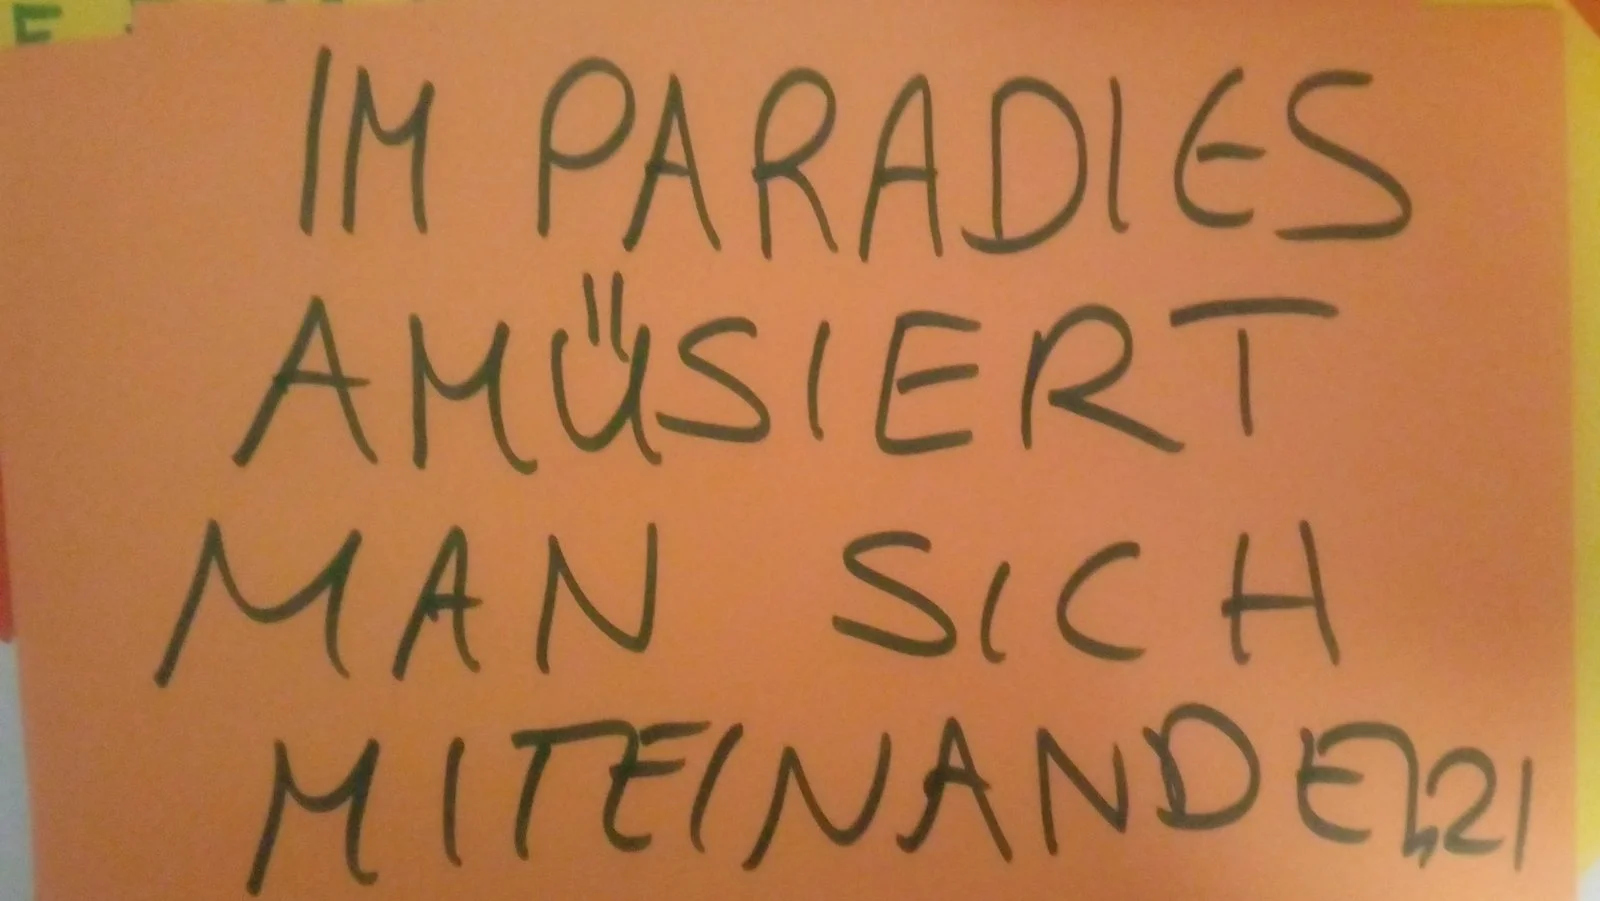 E
IM PARADIES
AMÜSIERT
MAN SICH
MITEINANDER!